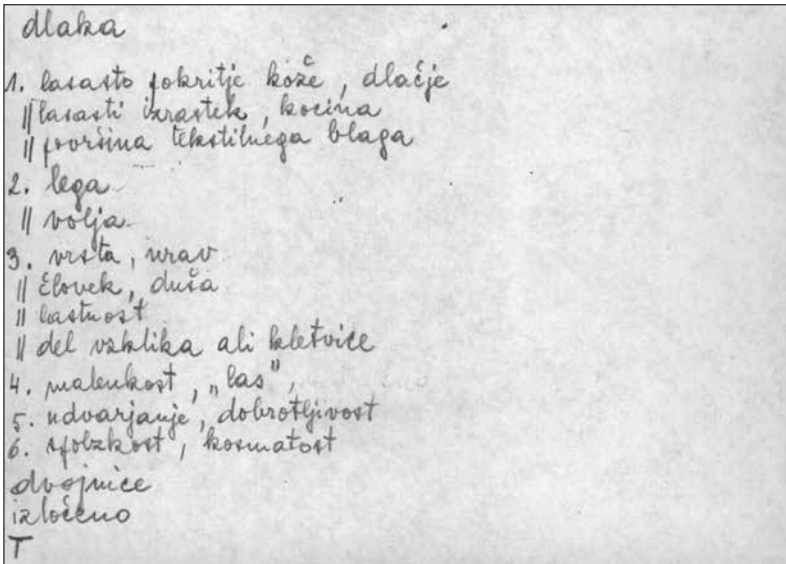 dlaka
1. lasasto pokritje kože, dlačje
|| lasasti izrastek, kocina
|| površina tekstilnega blaga
2. lega
|| volja
3. vrsta, nrav
|| človek, duša
|| lastnost
|| del vzklika ali kletvice
4. malenkost, „las",
5. udvarjanje, dobrotljivost
6. spolzkost, kosmatost
dvojnice
izločeno
T